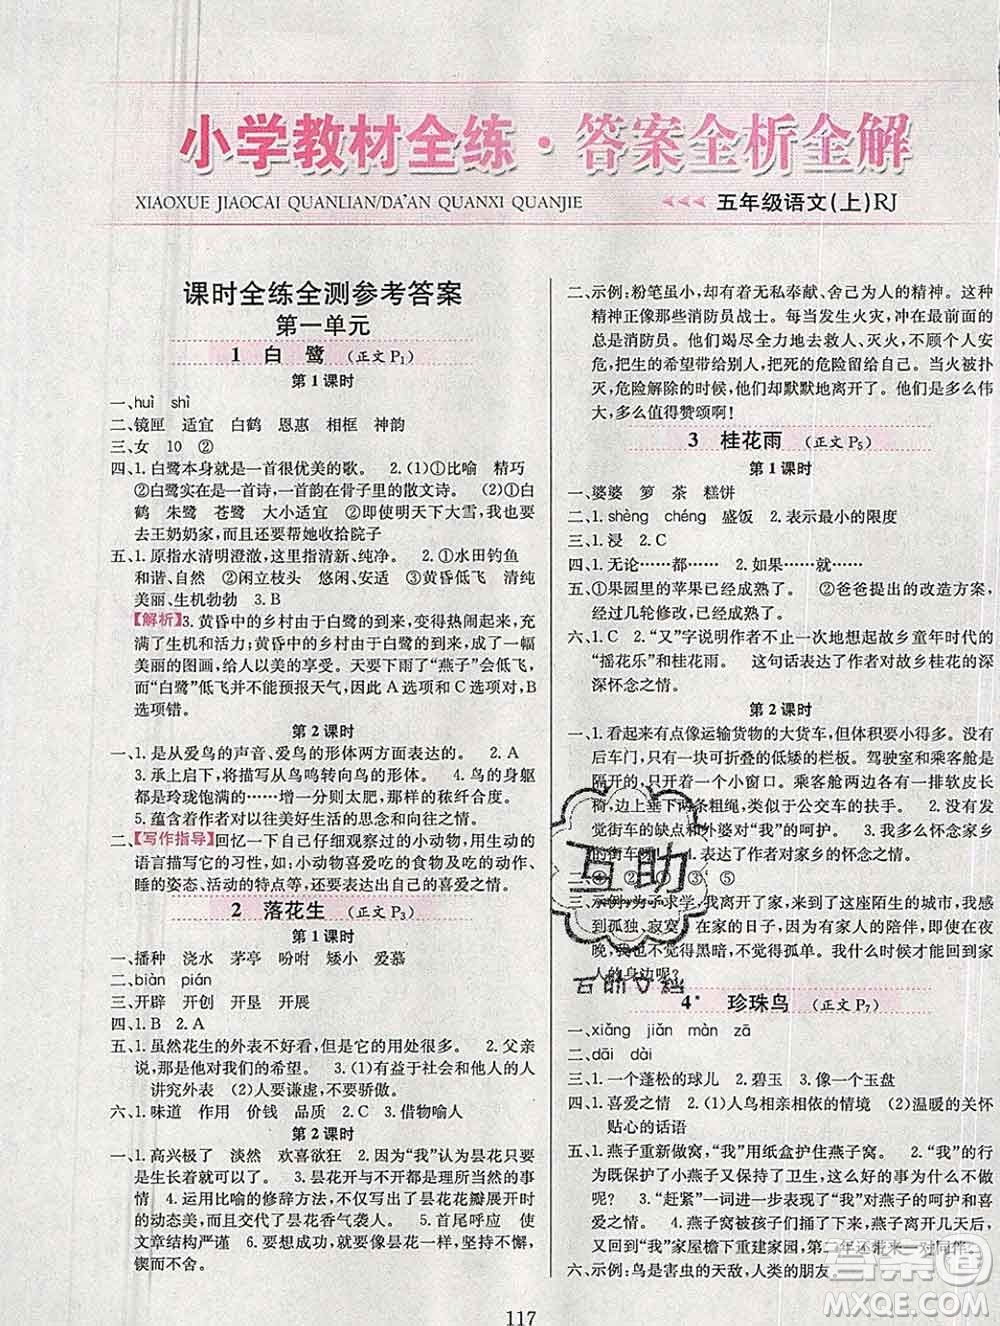 小学教材全练·答案全析全解
XIAOXUE JIAOCAI QUANLIAN/DA'AN QUANXI QUANJIE
五年级语文(上)RJ
课时全练全测参考答案
第一单元
1 白 鹭 (正文P₁)
第1课时
一、huì shì
二、镜匣 适宜 白鹤 恩惠 相框 神韵
三、女 10 ②
四、1.白鹭本身就是一首很优美的歌。 2.(1)①比喻 精巧
②白鹭实在是一首诗,一首韵在骨子里的散文诗。 (2)①白
鹤 朱鹭 苍鹭 大小适宜 (3)②即使明天下大雪,
王奶奶家,我们还要帮她收拾院子
五、1.原指水清明澄澈,这里指清新、纯净。 2.①水田钓鱼
和谐、自然 ②闲立枝头 悠闲、安适 ③黄昏低飞 清纯
美丽、生机勃勃 3.B
【解析】3.黄昏中的乡村由于白鹭的到来,变得热闹起来,充
满了生机和活力;黄昏中的乡村由于白鹭的飞行,成了一幅
美丽的图画,给人以美的享受。天要下雨“燕子”会低飞,
而“白鹭”低飞并不能预报天气,因此A选项和C选项对,B
选项错。
第2课时
一、1.是从爱鸟的声音、爱鸟的形体两方面表达的。 2.A
3.承上启下,将描写从鸟鸣转向鸟的形体。 4.鸟的身躯
都是玲珑饱满的……增一分则太肥,那样的秾纤合度。
5.蕴含着作者对以往美好生活的思念和向往之情。
二、【写作指导】回忆一下自己仔细观察过的小动物,用生动的
语言描写它的习性,如:小动物喜爱吃的食物及吃的动作、
睡的姿态、活动的特点等,还要表达出自己的喜爱之情。
2 落花生 (正文P₃)
第1课时
一、播种 浇水 茅亭 吩咐 矮小 爱慕
二、biàn pián
三、开辟 开创 开垦 开展
四、1.B 2.A
五、1.虽然花生的外表不好看,但是它的用处很多。 2.父亲
说,那是他对我们的希望。 3.(1)有益于社会和他人的人
讲究外表 (2)人要谦虚,不能骄傲。
六、1.味道 作用 价钱 品质 2.C 3.借物喻人
第2课时
一、1.高兴极了 淡然 欢喜欲狂 2.“我”认为昙花只要
表现了自己,就不再受冷落。 3.昙花开与不开都是理所当然的事
情 4.运用比喻的修辞方法,生动形象地写出了昙花花瓣展开时
的动态美,而且交代了昙花香气袭人。 5.首尾呼应 使
文章结构严谨 6.要想成功,就要像昙花一样,坚持不懈、
锲而不舍。
二、示例:粉笔虽小,却有着无私奉献、舍己为人的精神。这种
精神正像那些消防员战士。每当发生火灾,冲在最前面的
总是消防员。他们竭尽全力地救人、灭火,不顾个人安
危,把生的希望带给别人,把死的危险留给自己。当火被扑
灭,危险解除的时候,他们却默默地离开了。他们是多么伟
大,多么值得赞颂啊!
3 桂花雨 (正文P₅)
第1课时
一、婆婆 箩 茶 糕饼
二、1.shèng chéng 盛饭 2.表示最小的限度
三、1.浸 2.C
四、1.无论……都…… 2.如果……就……
五、①果园里的苹果已经成熟了。 ②爸爸提出的改造方案,
经过几轮修改,已经成熟了。
六、1.C 2.“又”字说明作者不止一次地想起故乡童年时代的
“摇花乐”和桂花雨。 这句话表达了作者对故乡桂花的深
深怀念之情。
第2课时
一、1.看起来有点像运输货物的大货车,但体积要小些。没有
后车门,只有一块可折叠的低矮的栏板。驾驶室和乘客舱是
隔开的,只有一个小窗口。乘客舱两边有一排软皮长
椅,边上垂下两条粗绳,类似于公交车的扶手。 2.没有发
觉街车的缺点和外婆对“我”的呵护。 3.喜欢坐家乡
的街车呀! 4.表达了作者对家乡的怀念之情。
二、④ ② ① ③ ⑤
三、示例:为了求学,我离开了家,来到了这座陌生的城市,我
感到孤独、寂寞。在家的日子,因为有家人的陪伴,即使是黑
晚,也不觉得黑暗,不觉得孤单。我什么时候才能回到家
人的身边呢?
4* 珍珠鸟 (正文P₇)
一、xiǎng jiǎn màn zā
二、dāi dài
三、1.一个蓬松的球儿 2.碧玉 3.像一个玉盘
四、1.喜爱之情 2.(1)人鸟亲近相亲的情境 (2)温暖的关怀
贴心的话语
五、1.燕子重新做窝,“我”用纸盒护住燕子窝。 2.“我”的方式
既保护了小燕子又保持了卫生,这么好的事情为什么不做
呢? 3.“赶紧”一词说明了“我”对燕子的呵护和喜
爱之情。 4.燕子窝被折腾过,燕子们非但没有飞走,
“我”家屋檐下重建家园,第二年还带来一对同伴。
六、示例:鸟是害虫的天敌,人类的朋友。
117
互助
互助文档
答案圈
MXQE.COM